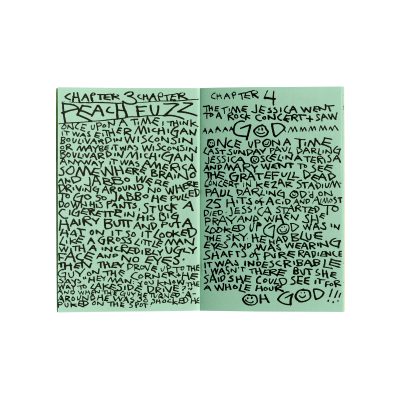 CHAPTER 3 CHAPTER
PEACH FUZZ
ONCE UPON A TIME I THINK
IT WAS EITHER MICHIGAN
BOULVARD IN WISCONSIN
OR MAYBE IT WAS WISCONSIN
BOULVARD IN MICHIGAN
ANYWAY IT WAS
SOMEWHERE BRAINO
AND JARED WERE
DRIVING AROUND NO WHERE
TO GO SO JABBO HE PULLED
DOWN HIS PANTS, STUCK A
CIGERETTE IN HIS BIG
HAIRY BUTT AND PUT A
HAT ON IT SO IT LOOKED
LIKE A GROSS LITTLE MAN
WITH A INCREDIBLY UGLY
FACE AND NO EYES.
THEN THEY DROVE UP TO THE
GUY ON THE CORNER. HE
SAYS "HEY MAN, YOU KNOW THE
WAY TO LAKESIDE DRIVE?"
AND WHEN THE GUY TURNED
AROUND HE WAS SO SHOCKED HE
PUKED ON THE SPOT
CHAPTER 4
THE TIME JESSICA WENT
TO A ROCK CONCERT & SAW
AAAAA GOD MMMMMM
ONCE UPON A TIME
LAST SUNDAY PAUL DARLING
JESSICA
AND MADY WENT TO SEE
THE GRATEFULL DEAD
CONCERT AT CEZAR STADIUM
PAUL DARLING OD'D ON
25 HITS OF ACID AND ALMOST
DIED JESSICA STARTED TO
PRAY UP WHEN SHE
LOOKED UP GOD WAS IN
THE SKY HE HAD BLUE
EYES AND WAS WEARING
SHAFTS OF PURE RADIENCE
IT WAS INDESCRIBABLE
I WASN'T THERE BUT SHE
SAID SHE COULD SEE IT FOR
A WHOLE HOUR
OH GOD!!!